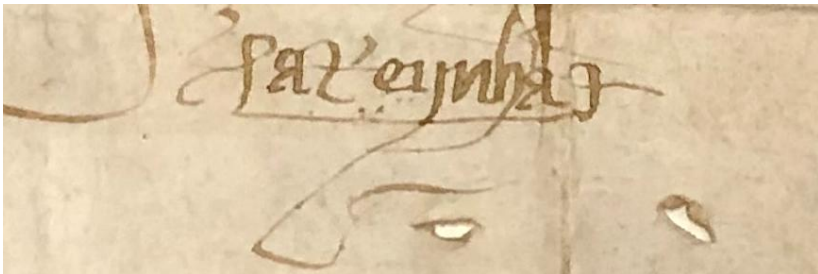 a Reynha